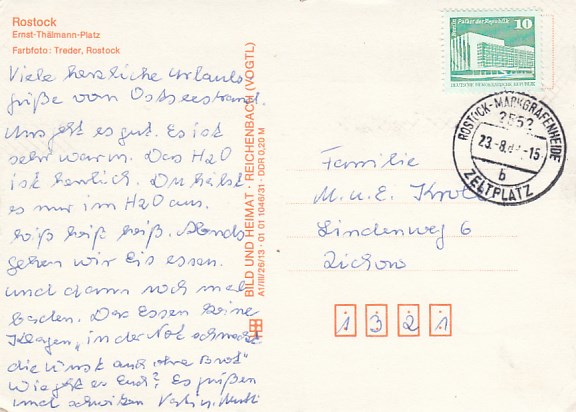 Rostock
Ernst-Thälmann-Platz
Farbfoto: Treder, Rostock
Viele herzliche Urlaubs-
grüße vom Ostseestrand.
Uns geht es gut. Es ist
sehr warm. Das H2O
ist herrlich. Du hälst
es nur im H2O aus.
heiß heiß heiß. Abends
gehen wir Eis essen.
und dann noch mal
baden. Das Essen keine
Klagen, "in der Not schmeckt
die Wurst auch ohne Brot"
Wie geht es Euch? Es grüßen
und
BILD UND HEIMAT · REICHENBACH (VOGTL)
A1/III/26/13 · 01 01 1046/31 · DDR 0,20 M
Berlin Palast der Republik
10
DEUTSCHE DEMOKRATISCHE REPUBLIK
ROSTOCK-MARKGRAFENHEIDE
2552
23.-8.
-15
b
ZELTPLATZ
Familie
M. u. E.
Lindenweg 6
Zichow
1 3 2 1